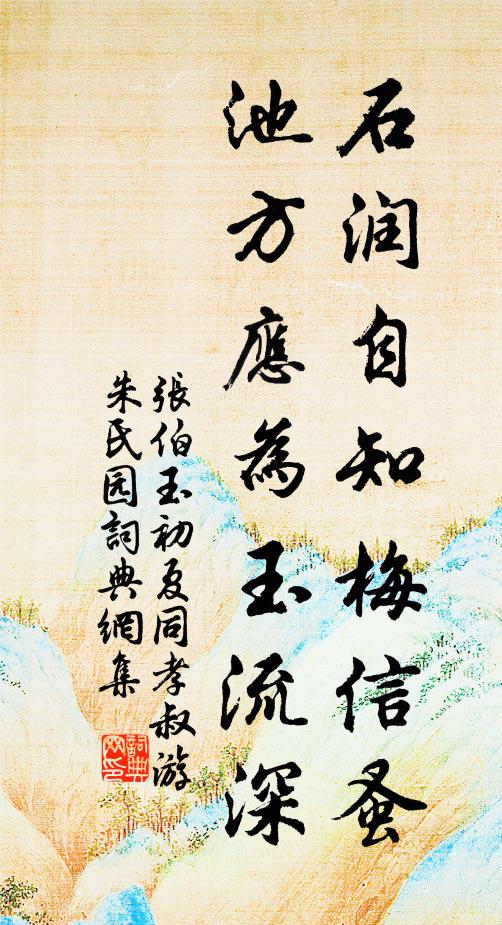 石润自知梅信蚤
池方應為玉流深
張伯玉初夏同孝叔游
朱氏园詞典網集
詞典
网印